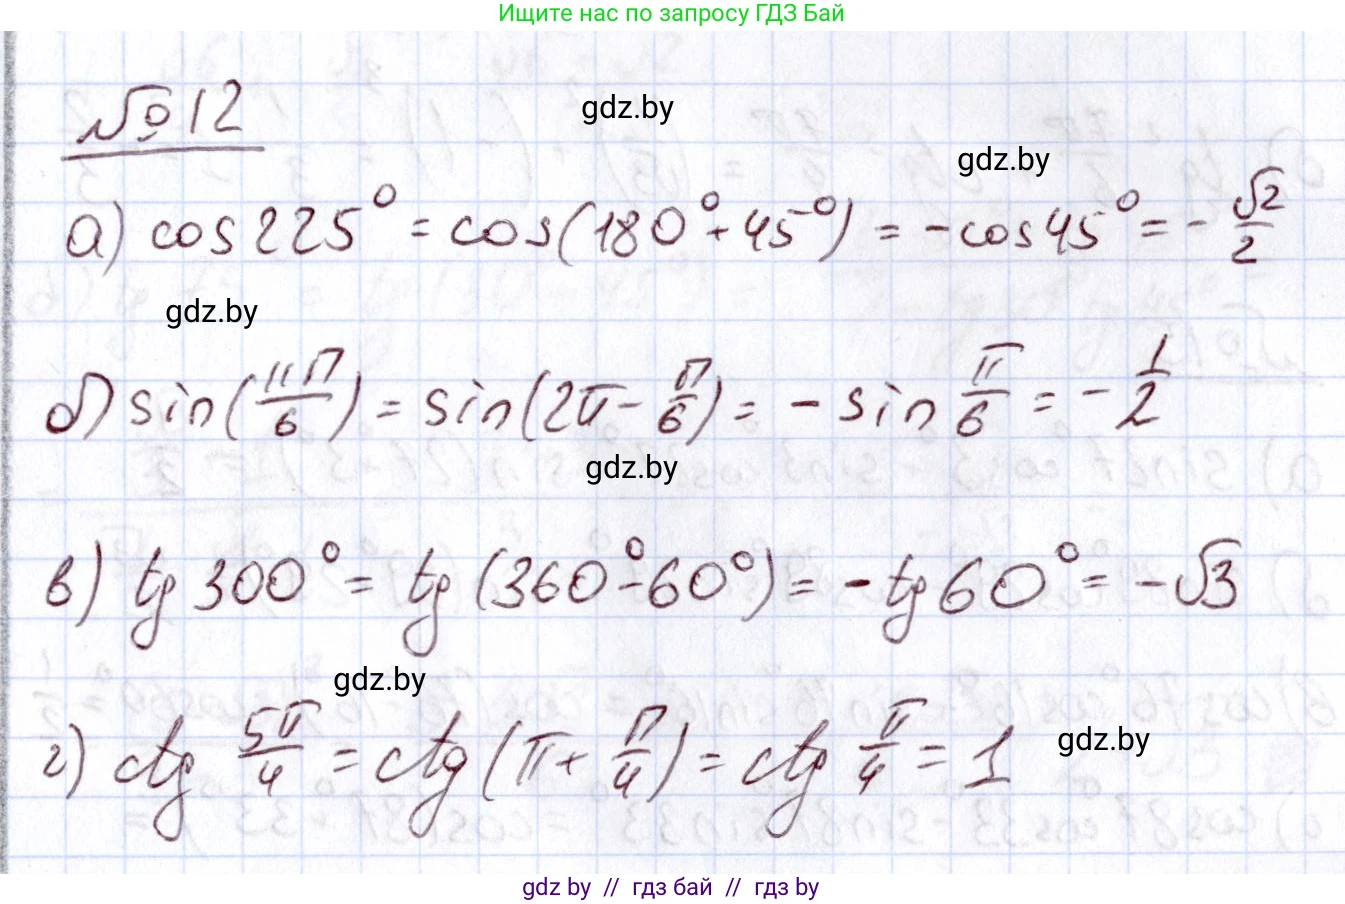 Ищите нас по запросу ГДЗ Бай
№ 12
gdz.by
gdz.by
а) cos 225° = cos(180° + 45°) = - cos 45° = - √2/2
gdz.by
б) sin(11π/6) = sin(2π - π/6) = - sin π/6 = - 1/2
gdz.by
в) tg 300° = tg (360° - 60°) = - tg 60° = - √3
gdz.by
г) ctg 5π/4 = ctg (π + π/4) = ctg π/4 = 1
gdz.by
gdz by // гдз бай // гдз by